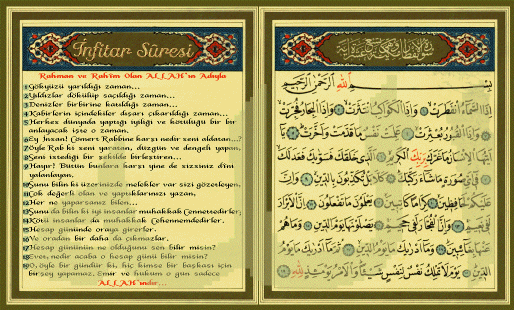 İnfitar Sûresi
Rahman ve Rahîm Olan ALLAH'ın Adıyla
1 Gökyüzü yarıldığı zaman...
2 Yıldızlar dökülüp saçıldığı zaman...
3 Denizler birbirine katıldığı zaman...
4 Kabirlerin içindekiler dışarı çıkarıldığı zaman...
5 Herkes dünyada yaptığı iyiliği ve kötülüğü bir bir
anlayacak işte o zaman.
6 Ey İnsan! Cömert Rabbine karşı nedir seni aldatan...?
7 Öyle Rab ki seni yaratan, düzgün ve dengeli yapan,
8 Seni istediği bir şekilde birleştiren...
9 Hayır! Bütün bunlara karşı yine de sizsiniz dîni
yalanlayan.
10 Şunu bilin ki üzerinizde melekler var sizi gözetleyen,
11 Çok değerli olan ve yaptıklarınızı yazan,
12 Her ne yaparsanız bilen...
13 Şunu da bilin ki iyi insanlar muhakkak Cennettedirler;
14 Kötü insanlar da muhakkak Cehennemdedirler.
15 Hesap gününde oraya girerler.
16 Ve oradan bir daha da çıkmazlar.
17 Hesap gününün ne olduğunu sen bilir misin?
18 Evet, nedir acaba o hesap günü bilir misin?
19 O, öyle bir gündür ki, hiç kimse bir başkası için
birşey yapamaz. Emir ve hüküm o gün sadece
ALLAH'ındır...
بسم الله الرحمن الرحيم
اذا السماء انفطرت واذا الكواكب انتثرت واذا البحار فجرت
واذا القبور بعثرت علمت نفس ما قدمت واخرت يا
ايها الانسان ما غرك بربك الكريم الذي خلقك فسويك فعدلك
في اي صورة ما شاء ركبك كلا بل تكذبون بالدين وان
عليكم لحافظين كراما كاتبين يعلمون ما تفعلون ان الابرار
لفي نعيم وان الفجار لفي جحيم يصلونها يوم الدين وما هم
عنها بغائبين وما ادريك ما يوم الدين ثم ما ادريك ما يوم
الدين يوم لا تملك نفس لنفس شيئا والامر يومئذ لله